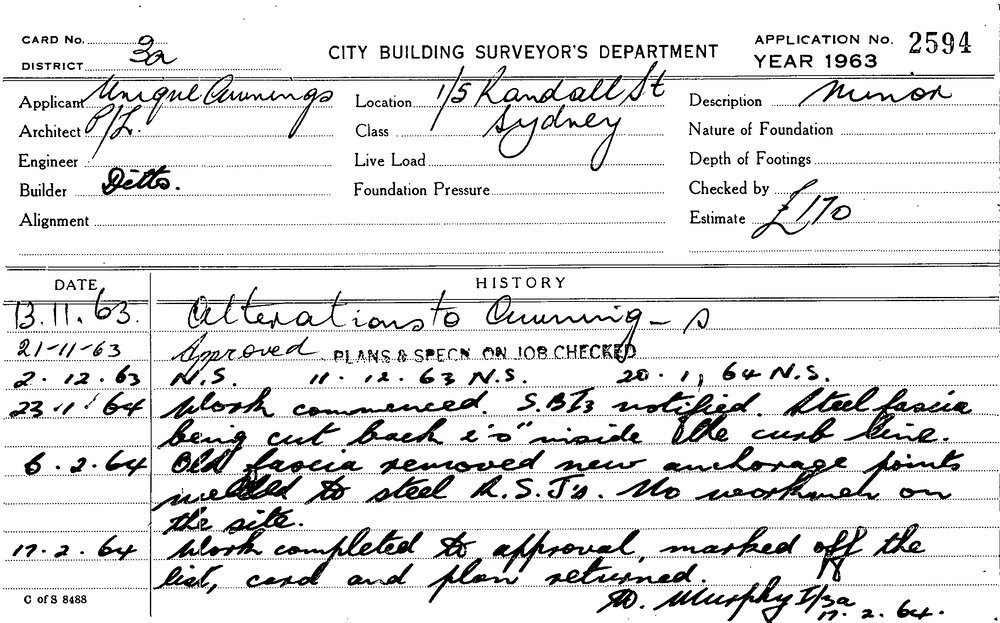 CARD No. 3a
DISTRICT
CITY BUILDING SURVEYOR'S DEPARTMENT
APPLICATION No. 2594
YEAR 1963
Applicant Unique Awnings
Architect P/L.
Engineer
Builder Ditto.
Alignment
Location 1/5 Randall St
Class Sydney
Live Load
Foundation Pressure
Description Minor
Nature of Foundation
Depth of Footings
Checked by
Estimate £170
DATE HISTORY
13.11.63. Alterations to Awning-s
21-11-63 Approved PLANS & SPECN ON JOB CHECKED
2.12.63 N.S. 11.12.63 N.S. 20.1.64 N.S.
23.1.64 Work commenced. notified. Steel fascia
being cut back inside the curb line.
6.2.64 Old fascia removed new anchorage points
welded to steel R.S.J's. No workmen on
the site.
17.2.64 Work completed to approval, marked off the
list, card and plan returned.
C of S 8488
Murphy I/3a
17.2.64.